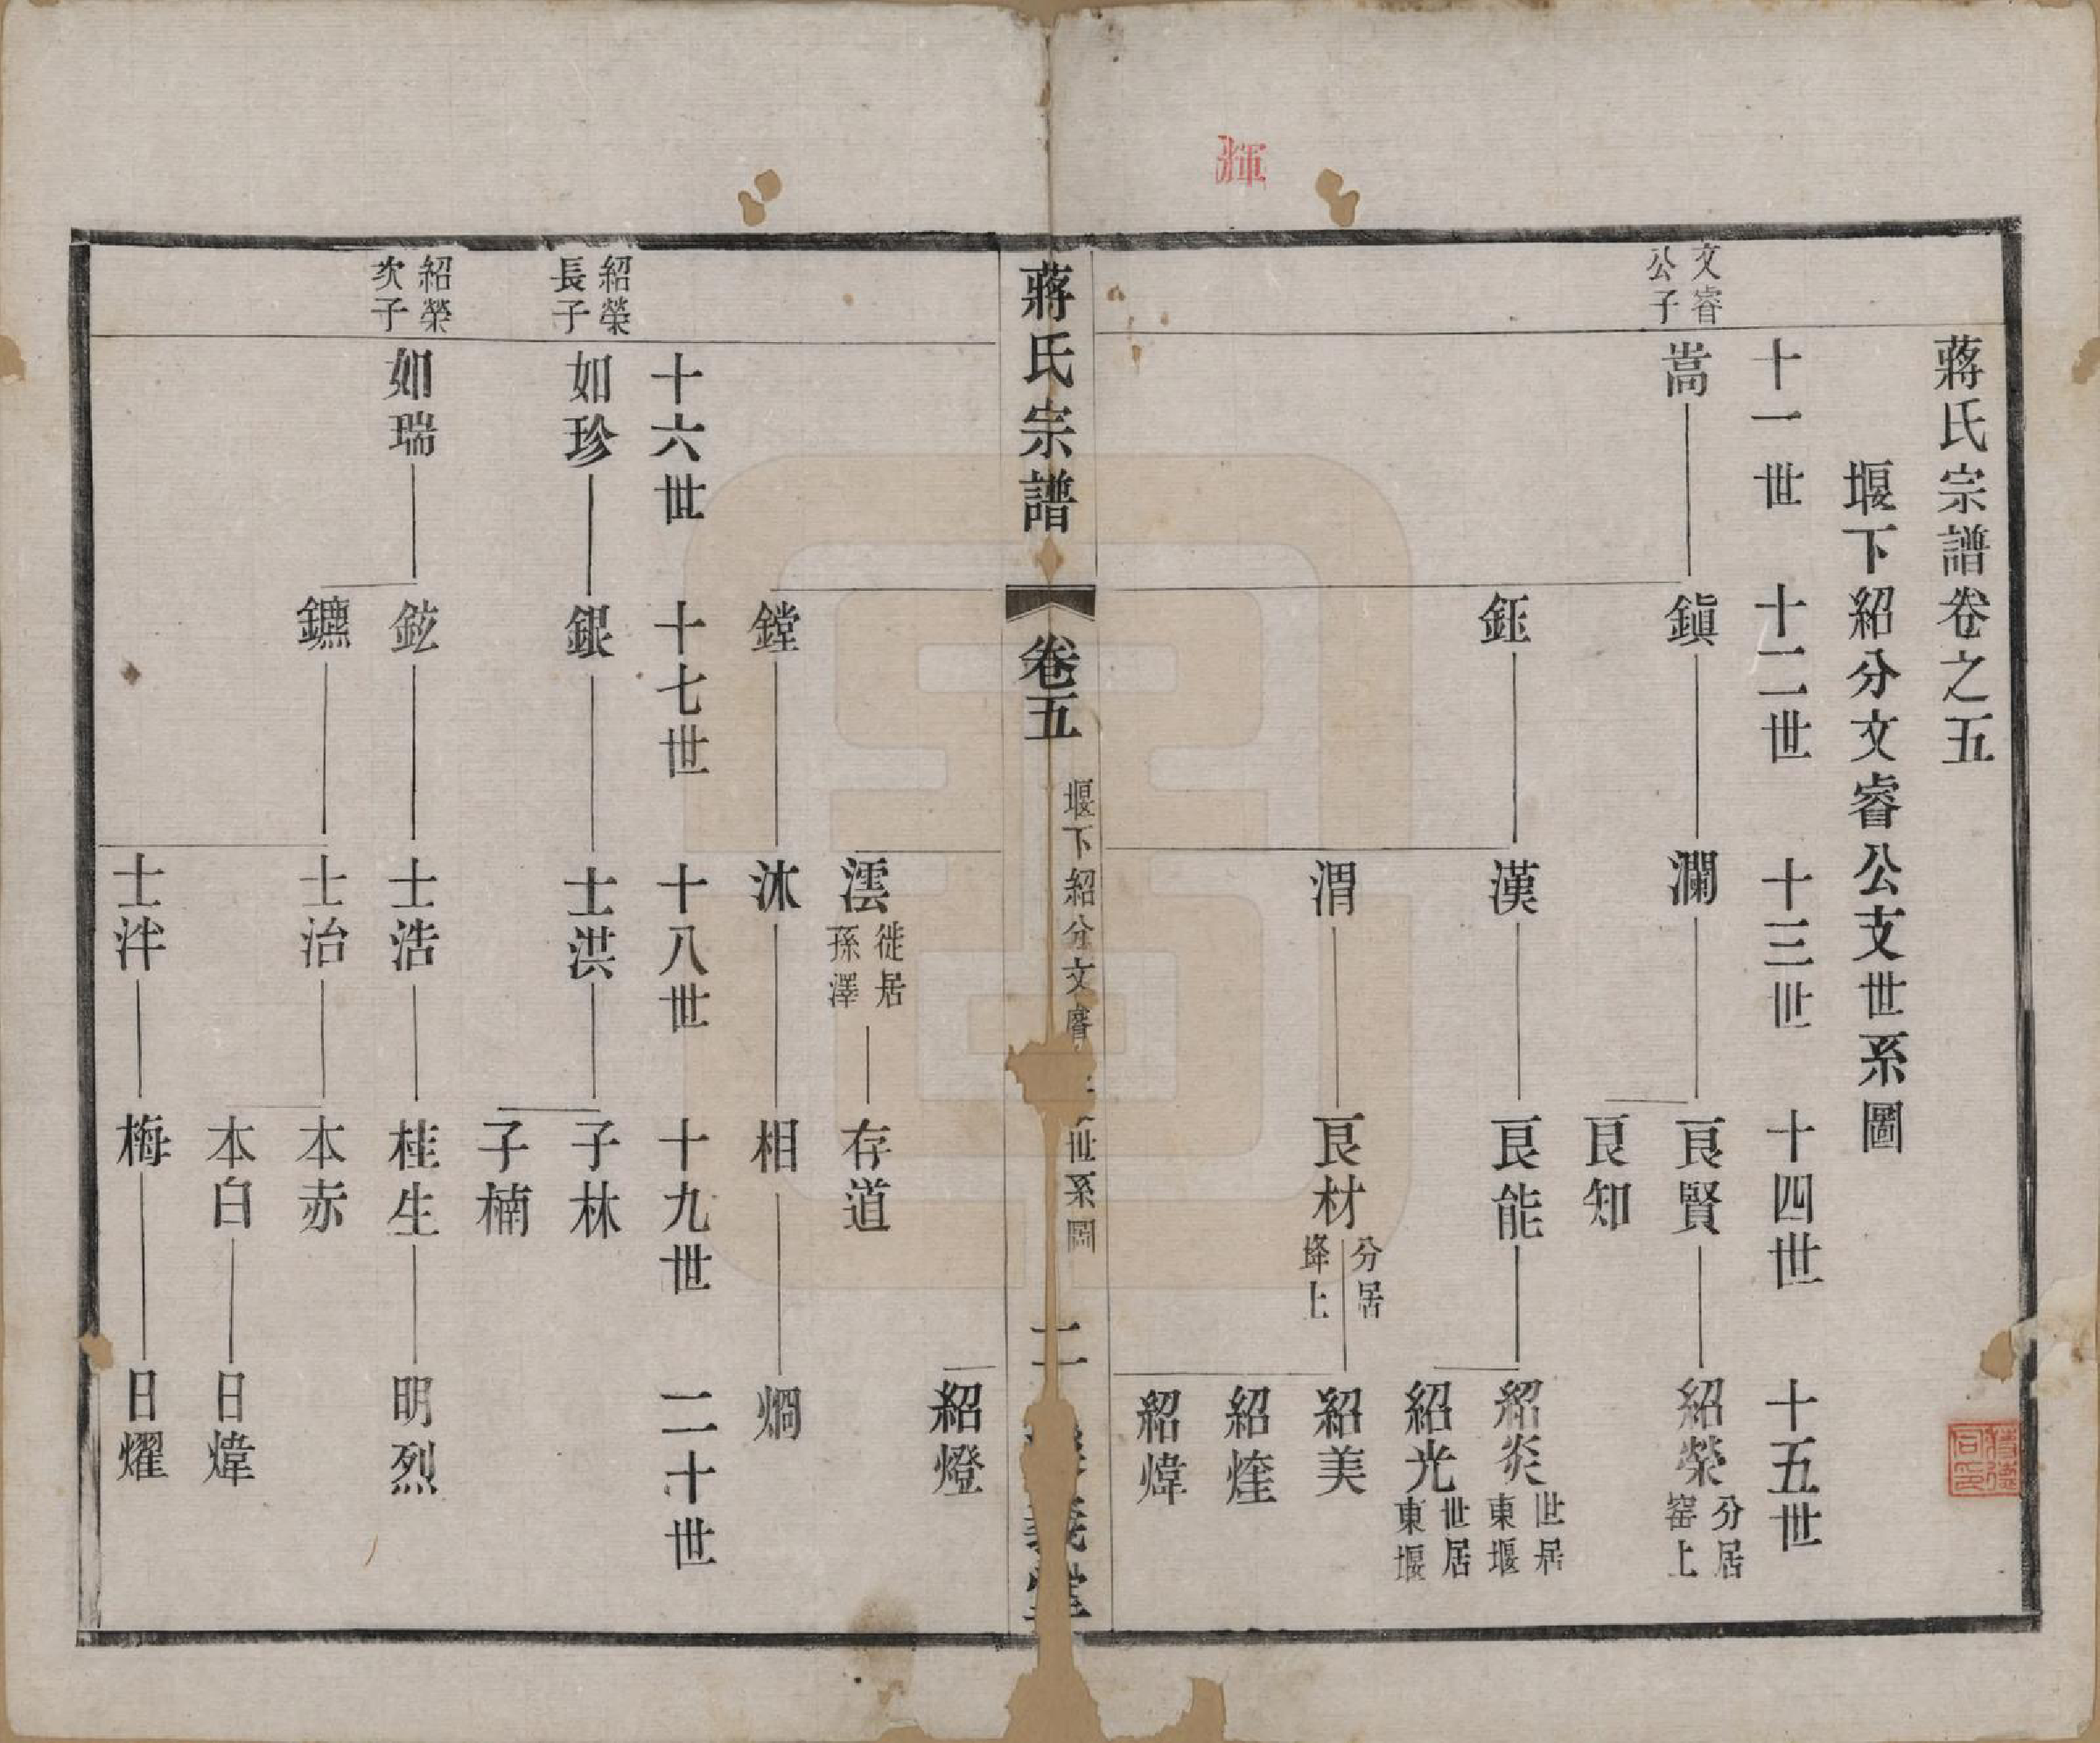 蔣氏宗譜卷之五
堰下紹分文睿公支世系圖
十一世 十二世 十三世 十四世 十五世
文睿
公子
嵩 鎭 瀾 良賢 紹榮
分居
窑上
良知
鈺 漢 良能 紹炎
世居
東堰
紹光
世居
東堰
渭 良材
分居
紹美
紹煃
紹煒
蔣氏宗譜
卷五
堰下紹分文睿 世系圖
二
義堂
紹燈
澐
徙居
孫澤
存道
鏜 沐 相 燗
十六世 十七世 十八世 十九世 二十世
紹榮
長子
如珍 銀 士洪 子林
子楠
紹榮
次子
如瑞 鉉 士浩 桂生 明烈
鑣 士治 本赤
本白 日煒
士泮 梅 日燿
輝